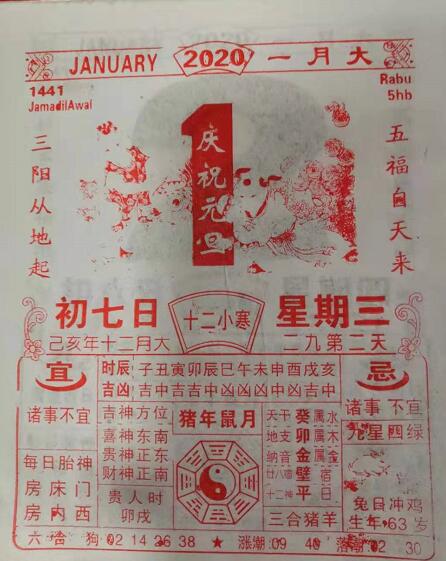 JANUARY 2020 一月大
1441
JamadilAwal
Rabu
5hb
三阳从地起
1
庆祝元旦
五福自天来
初七日
十二小寒
星期三
己亥年十二月大
二九第二天
宜
诸事不宜
每日胎神
房床门
房内西
时辰 子丑寅卯辰巳午未申酉戌亥
吉凶 吉中吉中凶中凶凶中凶吉中
吉神方位
喜神东南
贵神正东
财神正南
贵人时
卯戌
猪年鼠月
天干 癸 属水
地支 卯 属木
纳音 金 属金
廿八宿 壁 宿
十二神 平 日
三合猪羊
忌
诸事不宜
九星四绿
兔日冲鸡
生年:63岁
六合 狗:02 14 26 38 ★ 涨潮:09 40 落潮:02 30